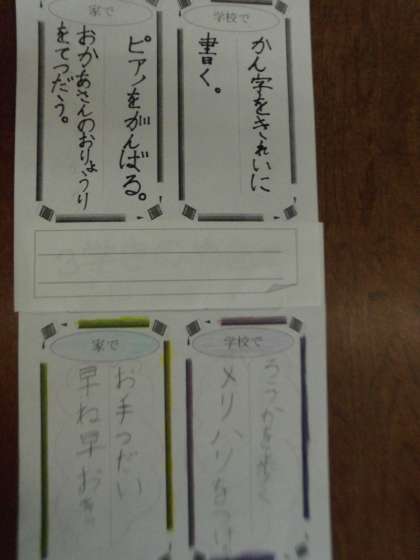 学校で
かん字をきれいに
書く。
家で
ピアノをがんばる。
おかあさんのおりょうり
をてつだう。
学校で
ろうかを歩く
メリハリをつけ
家で
お手つだい
早ね早おき